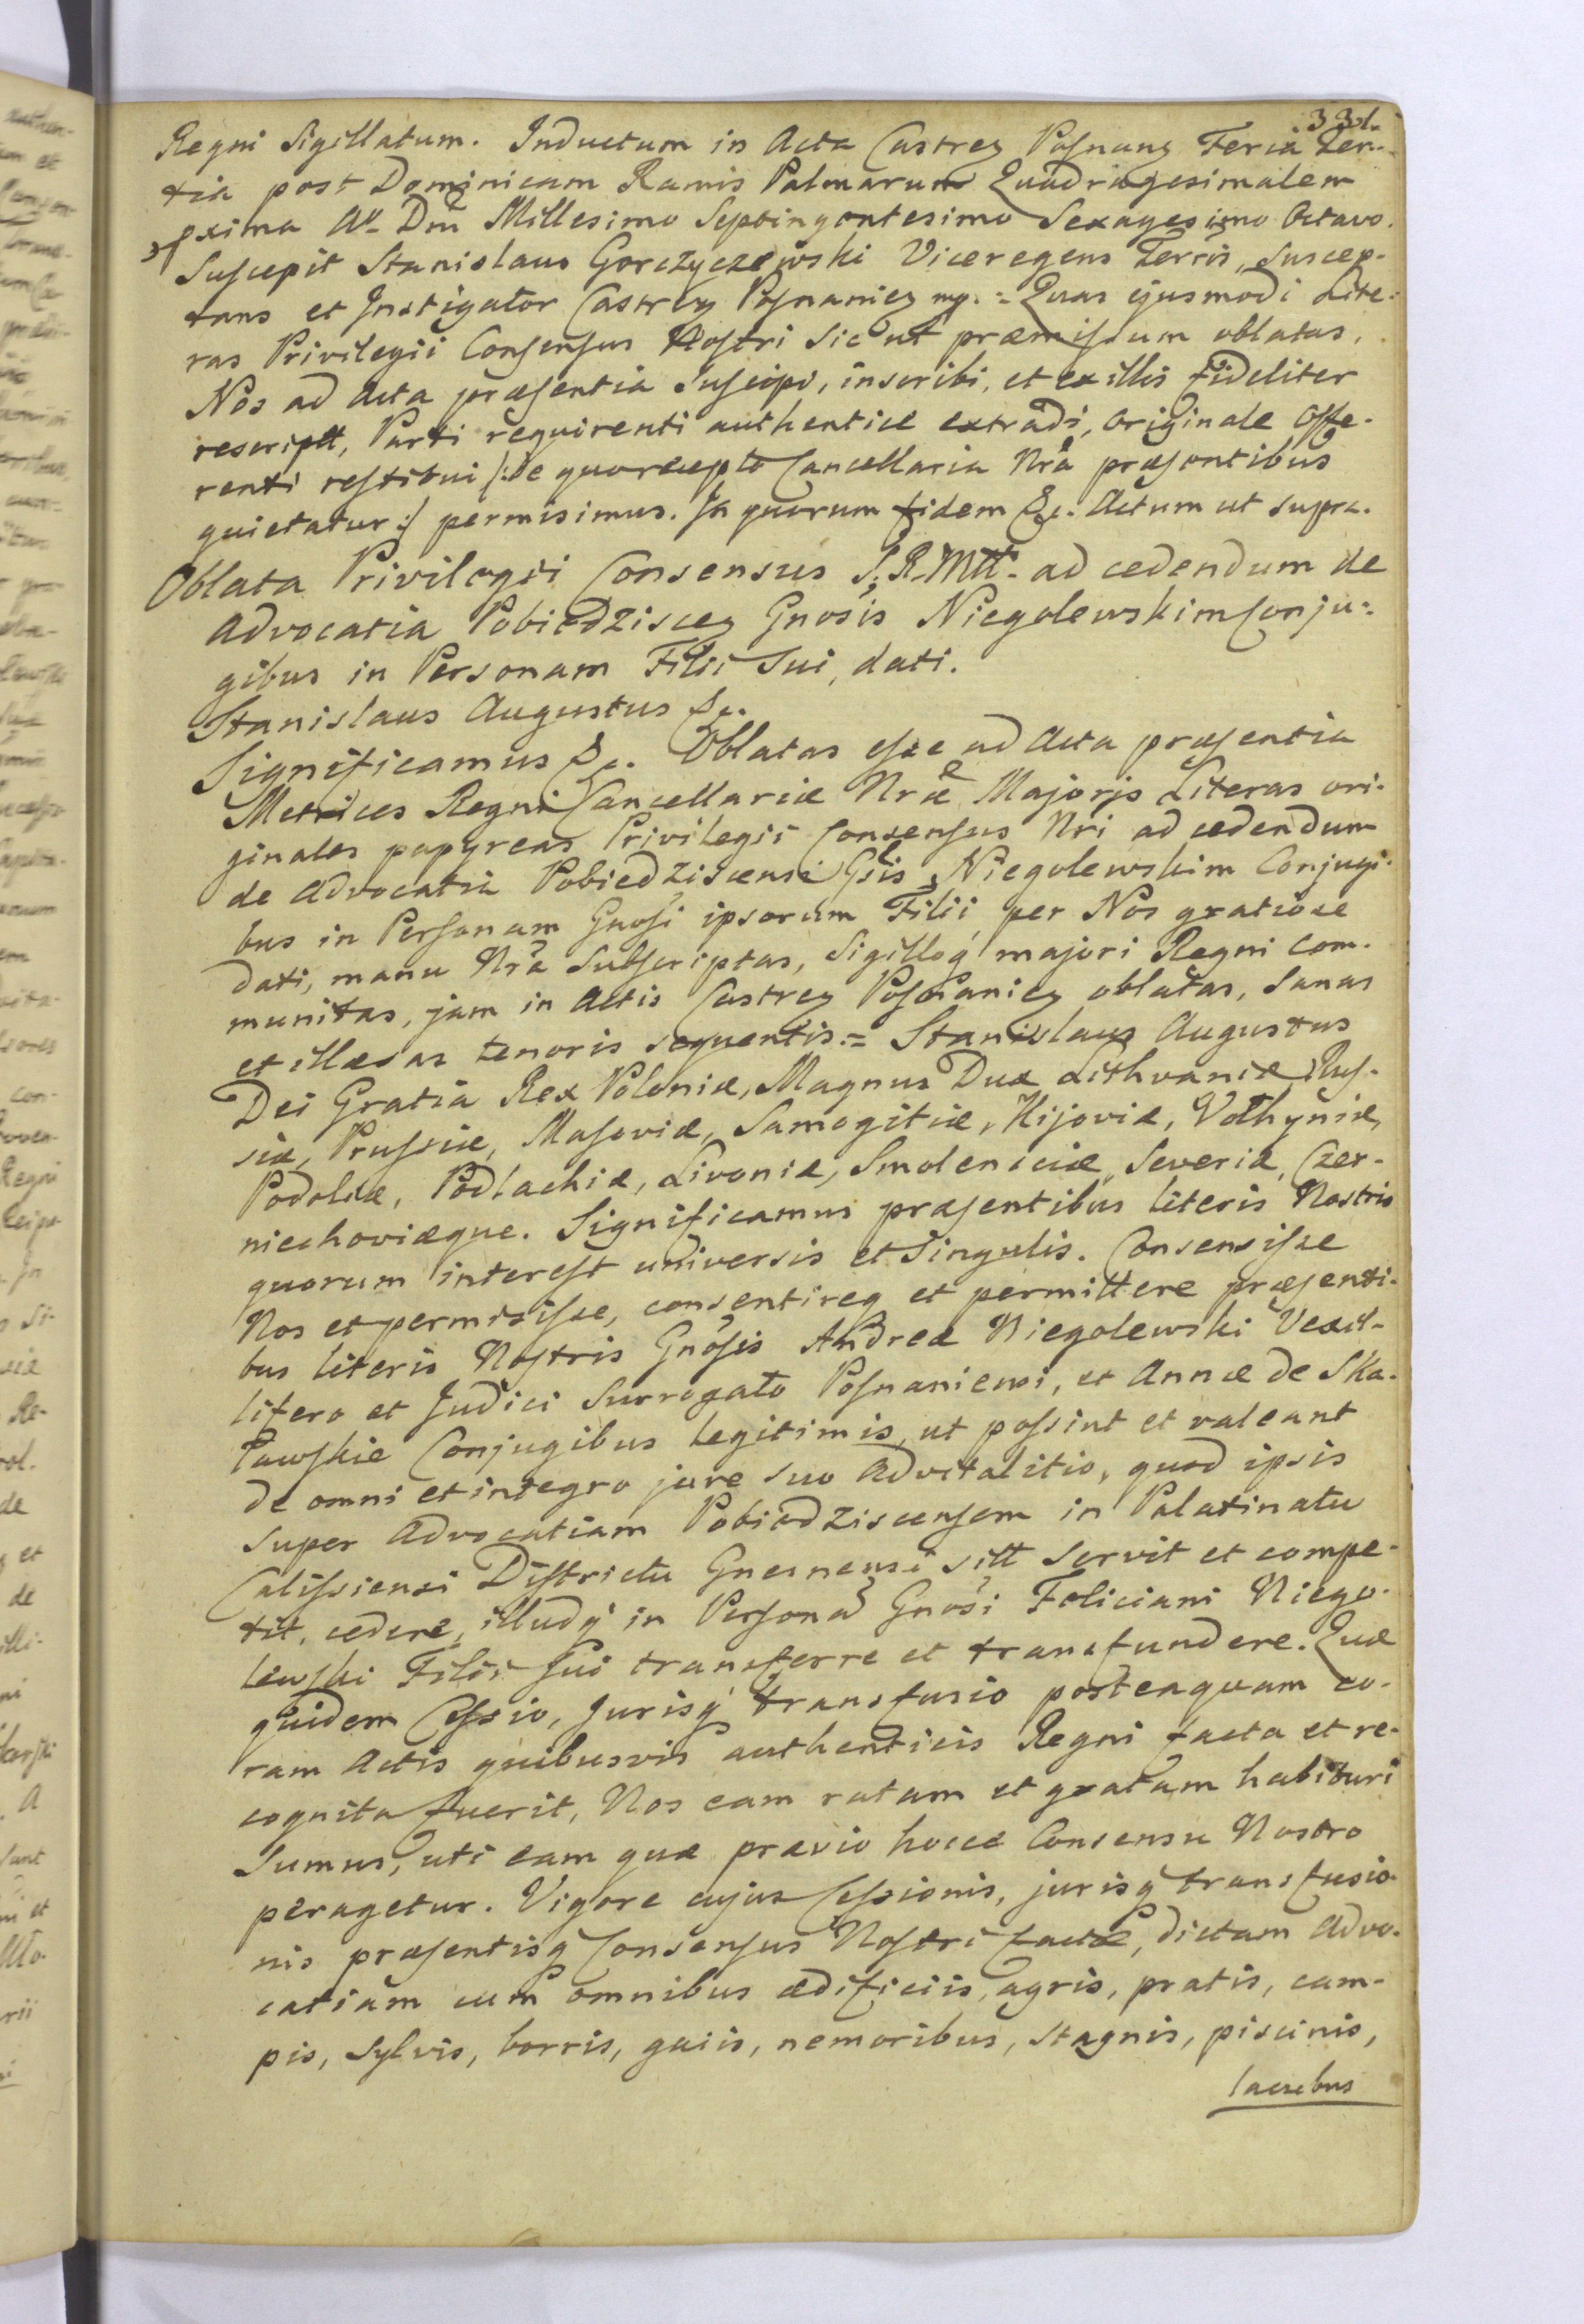 331.
Regni Sigillatum. Inductum in Acta Castreȝ Posnanȝ Feria Ter-
tia post Dominicam Ramis Palmarum Quadragesimalem
xima Aᵒ Dni Millesimo Septingentesimo Sexagesimo Octavo.
Suscepit Stanislaus Gorczyczewski Viceregens Terris, Suscep-
tans et Instigator Castreȝ Posnanieȝ mp. = Quas ejusmodi Lite-
ras Privilegii Consensus Nostri sic ut præmissum oblatas,
Nos ad Acta præsentia suscipi, inscribi, et ex illis fideliter
rescriptt, Parti requirenti authentice extradi, Originale Offe-
renti restitui /: de quo recepto Cancellaria Nrã præsentibus
quietatur :/ permisimus. In quorum fidem &c. Actum ut supra.
Oblata Privilegii Consensus S. R. Mtt. ad cedendum de
Advocatia Pobiedzisceȝ Gnosis Niegolewskim Conju-
gibus in Personam Filii Sui, dati.
Stanislaus Augustus &c.
Significamus &c. Oblatas esse ad Acta præsentia
Metrices Regni Cancellariæ Nræ Majoris Literas ori-
ginales papyreas Privilegii Consensus Nri ad cedendum
de Advocatia Pobiedziscensi Gsis Niegolewskim Conjugi-
bus in Personam Gnosi ipsorum Filii, per Nos gratiose
dati, manu Nrã Subscriptas, Sigilloq́ majori Regni com-
munitas, jam in Actis Castreȝ Posnanieȝ oblatas, Sanas
et illæsas tenoris sequentis. = Stanislaus Augustus
Dei Gratia Rex Poloniæ, Magnus Dux Lithvaniæ, Rus-
siæ, Prussiæ, Masoviæ, Samogitiæ, Kijoviæ, Volhyniæ,
Podoliæ, Podlachiæ, Livoniæ, Smolensciæ, Severiæ, Czer-
niechoviæque. Significamus præsentibus literis Nostris
quorum interest universis et Singulis. Consensisse
Nos et permisisse, consentireq et permittere præsenti-
bus literis Nostris Gnosis Andreæ Niegolewski Vexil-
lifero et Judici Surrogato Posnaniensi, et Annæ de Ska-
ławskie Conjugibus legitimis, ut possint et valeant
de omni et integro jure suo Advitalitio, quod ipsis
super Advocatiam Pobiedziscensem in Palatinatu
Calissiensi Districtu Gnesnensi sitt servit et compe-
tit, cedere, illudq́ in Persona Gnosi Feliciani Niego-
lewski Filii sui transferre et transfundere. Quæ
quidem Cessio, Jurisq́ transfusio posteaquam co-
ram Actis quibusvis authenticis Regni facta et re-
cognita fuerit, Nos eam ratam et gratam habituri
Sumus, uti eam quæ prævio hocce Consensu Nostro
peragetur. Vigore cujus Cessionis, jurisq́ transfusio-
nis præsentisq́ Consensus Nostri factæ, dictam Advo-
catiam cum omnibus ædificiis, agris, pratis, cam-
pis, sylvis, borris, gaiis, nemoribus, stagnis, piscinis,
lacubus